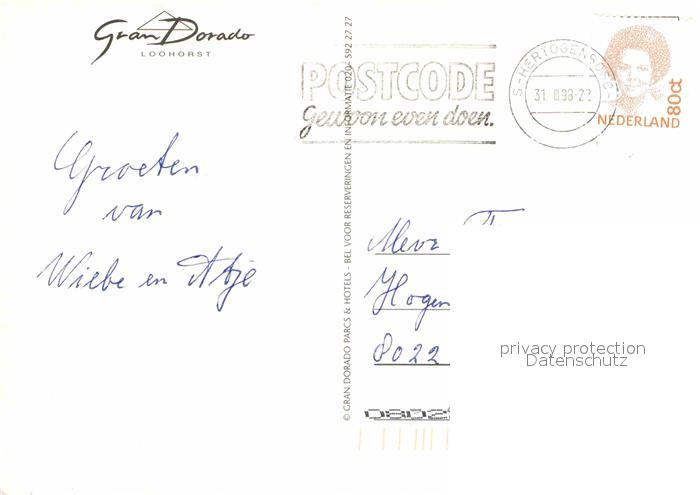 Gran Dorado
LOOHORST
Groeten
van
Wiebe en Atje
© GRAN DORADO PARCS & HOTELS - BEL VOOR RESERVERINGEN EN INFORMATIE 020 - 592 27 27
POSTCODE
Gewoon even doen.
'S-HERTOGENBOSCH
31 III 98-22
80ct
NEDERLAND
Mevr
Hogen
8022
privacy protection
Datenschutz